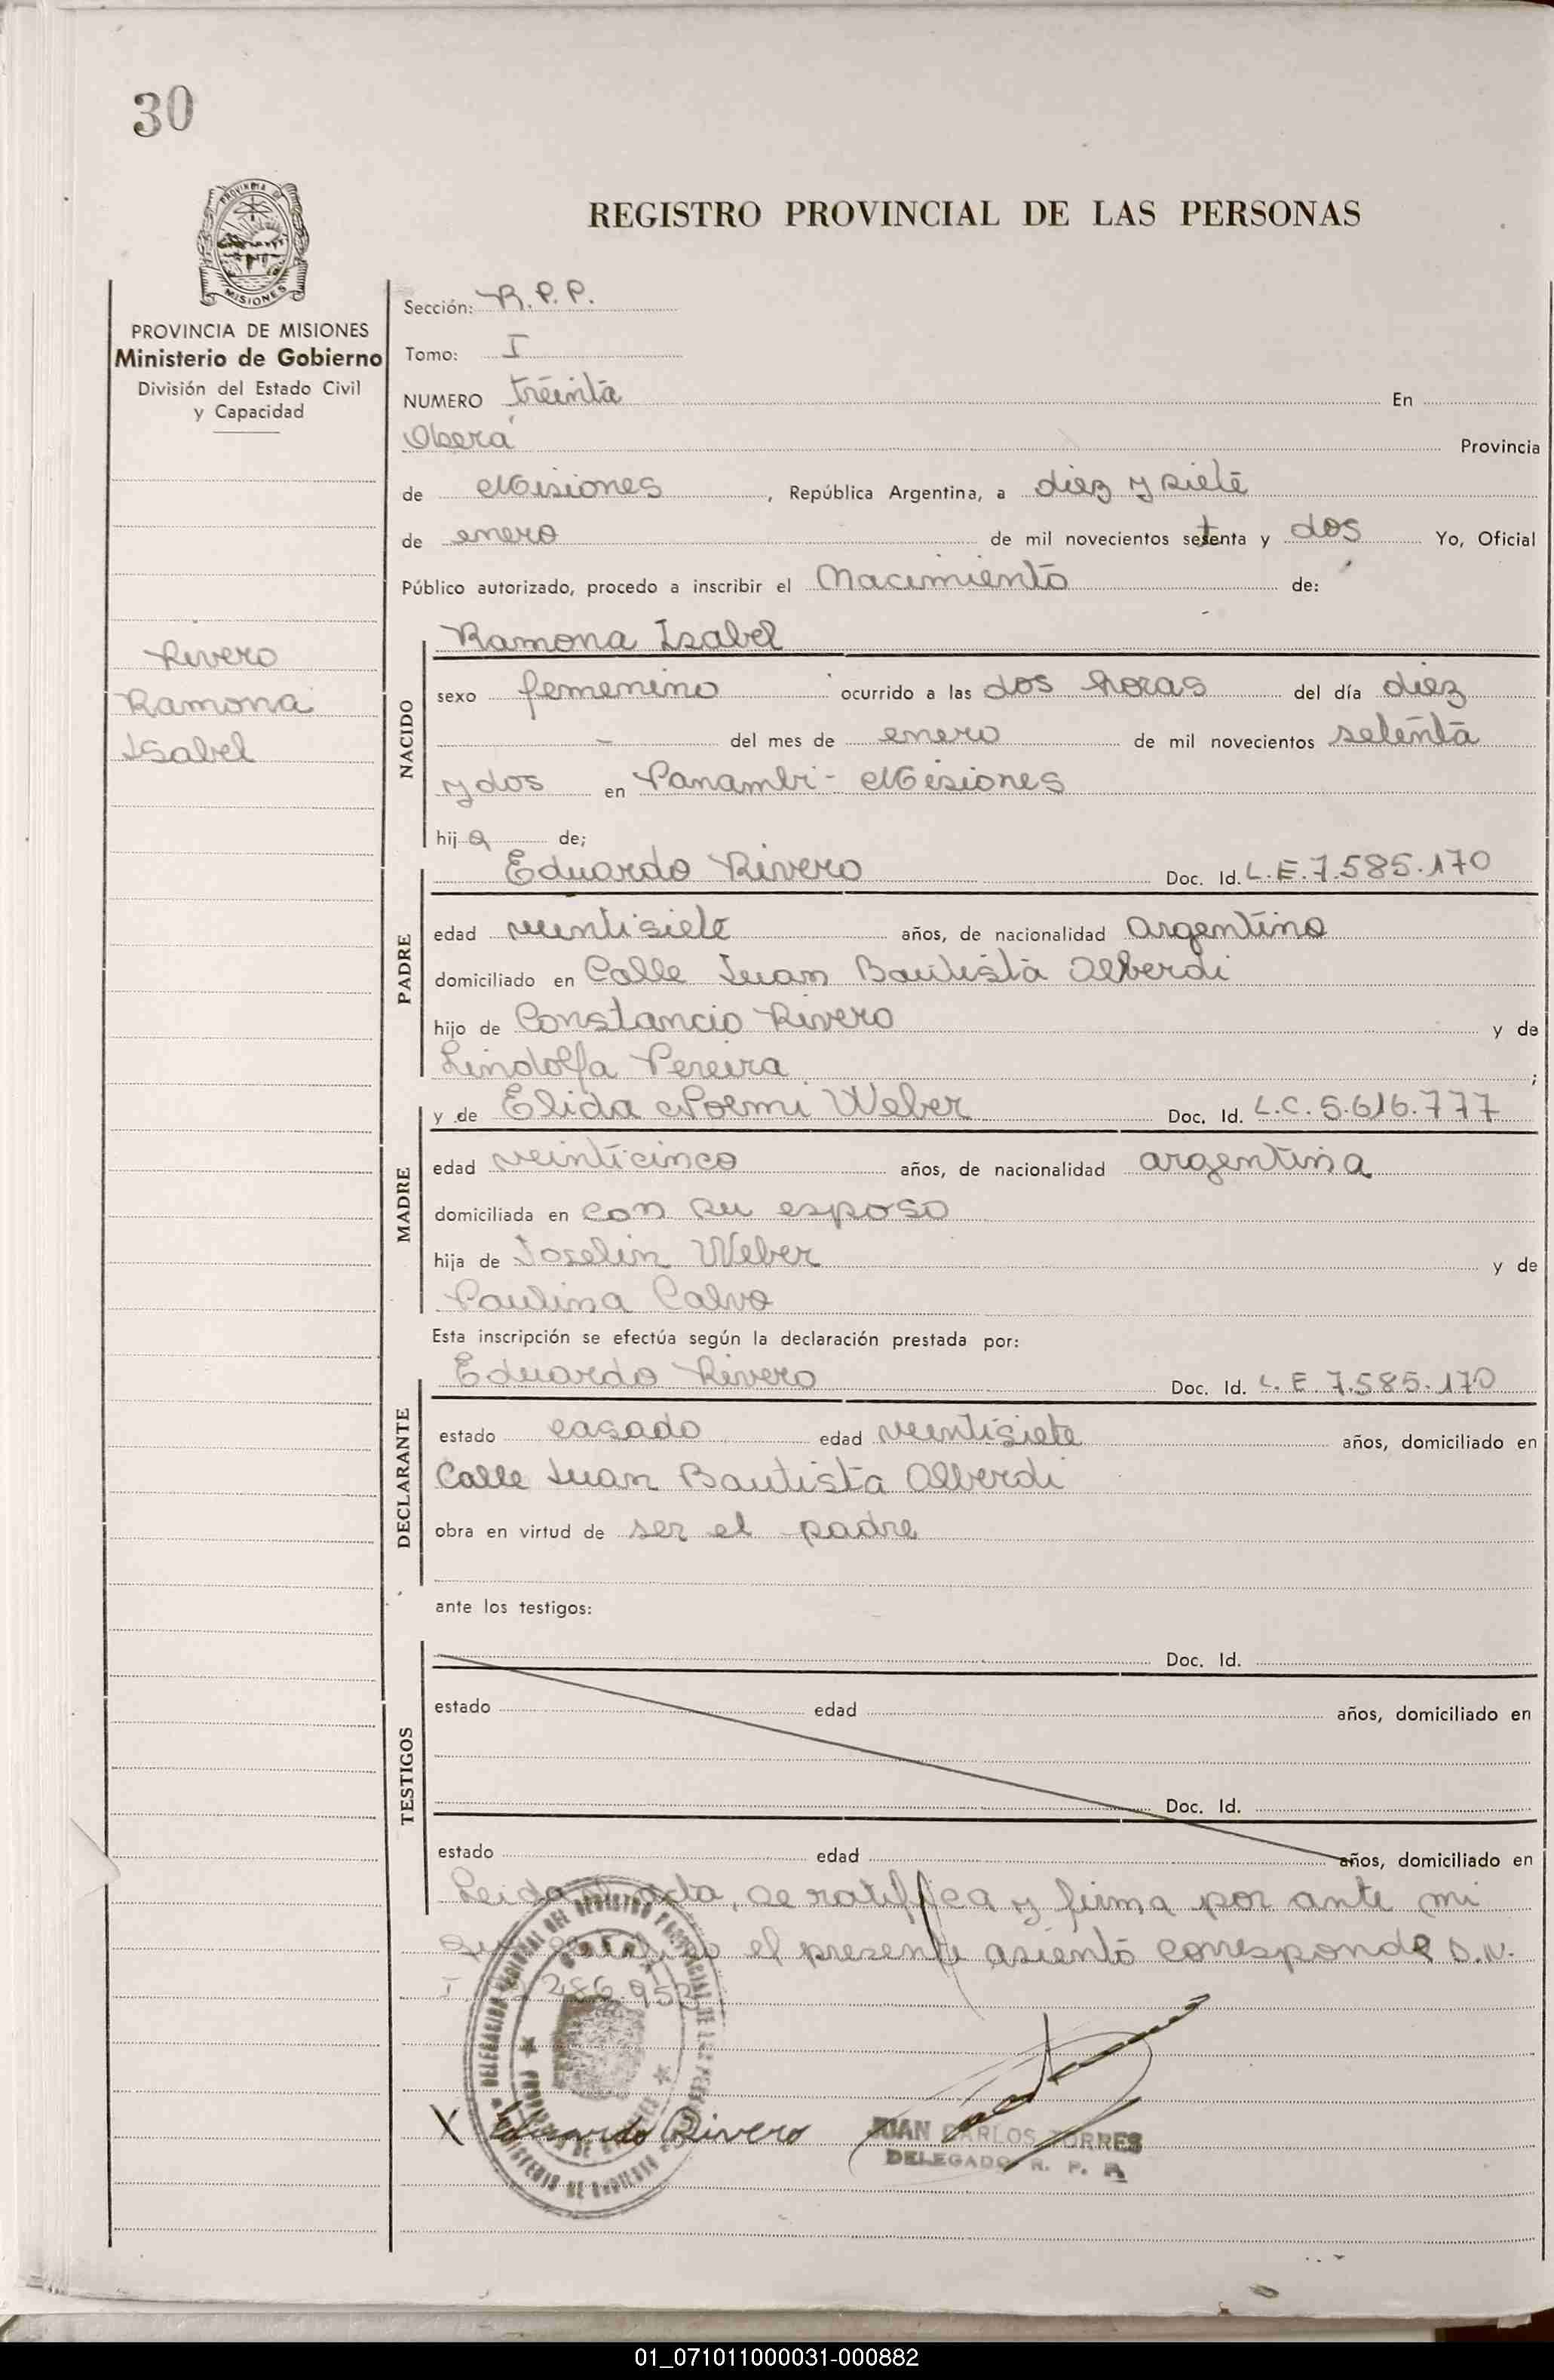 30
PROVINCIA DE
MISIONES
REGISTRO PROVINCIAL DE LAS PERSONAS
PROVINCIA DE MISIONES
Ministerio de Gobierno
División del Estado Civil
y Capacidad
Rivero
Ramona
Isabel
Sección: R.P.P.
Tomo: I
NUMERO treinta En
Oberá Provincia
de Misiones, República Argentina, a diez y siete
de enero de mil novecientos setenta y dos Yo, Oficial
Público autorizado, procedo a inscribir el Nacimiento de:
NACIDO
Ramona Isabel
sexo femenino ocurrido a las dos horas del día diez
- del mes de enero de mil novecientos setenta
y dos en Panambi - Misiones
hija de;
PADRE
Eduardo Rivero Doc. Id. L.E. 7.585.170
edad veintisiete años, de nacionalidad argentino
domiciliado en Calle Juan Bautista Alberdi
hijo de Constancio Rivero y de
Lindolfa Pereira ;
MADRE
y de Elida Noemi Weber Doc. Id. L.C. 5.616.777
edad veinticinco años, de nacionalidad argentina
domiciliada en con su esposo
hija de Joselin Weber y de
Paulina Calvo
Esta inscripción se efectúa según la declaración prestada por:
DECLARANTE
Eduardo Rivero Doc. Id. L.E 7.585.170
estado casado edad veintisiete años, domiciliado en
Calle Juan Bautista Alberdi
obra en virtud de ser el padre
ante los testigos:
TESTIGOS
Doc. Id.
estado edad años, domiciliado en
Doc. Id.
estado edad años, domiciliado en
Leida acta, se ratifica y firma por ante mi
el presente asiento corresponde D.N.
I. 286.952
X Eduardo Rivero
JUAN CARLOS TORRES
DELEGADO R. P. P.
01_071011000031-000882